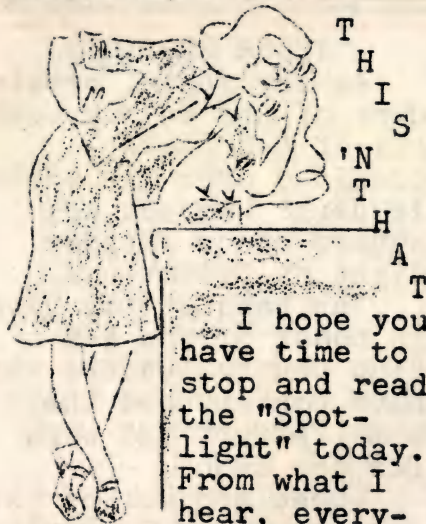 THIS 'N THAT
I hope you
have time to
stop and read
the "Spot-
light" today.
From what I
hear, every-